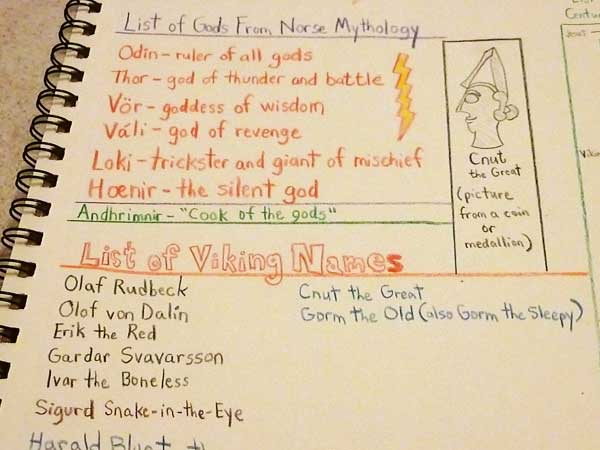 List of Gods From Norse Mythology
Odin – ruler of all gods
Thor – god of thunder and battle
Vör – goddess of wisdom
Váli – god of revenge
Loki – trickster and giant of mischief
Hœnir – the silent god
Andhrimnir – "Cook of the gods"
Cnut
the Great
(picture
from a coin
or
medallion)
List of Viking Names
Olaf Rudbeck
Olof von Dalin
Erik the Red
Gardar Svavarsson
Ivar the Boneless
Sigurd Snake-in-the-Eye
Harald
Cnut the Great
Gorm the Old (also Gorm the Sleepy)